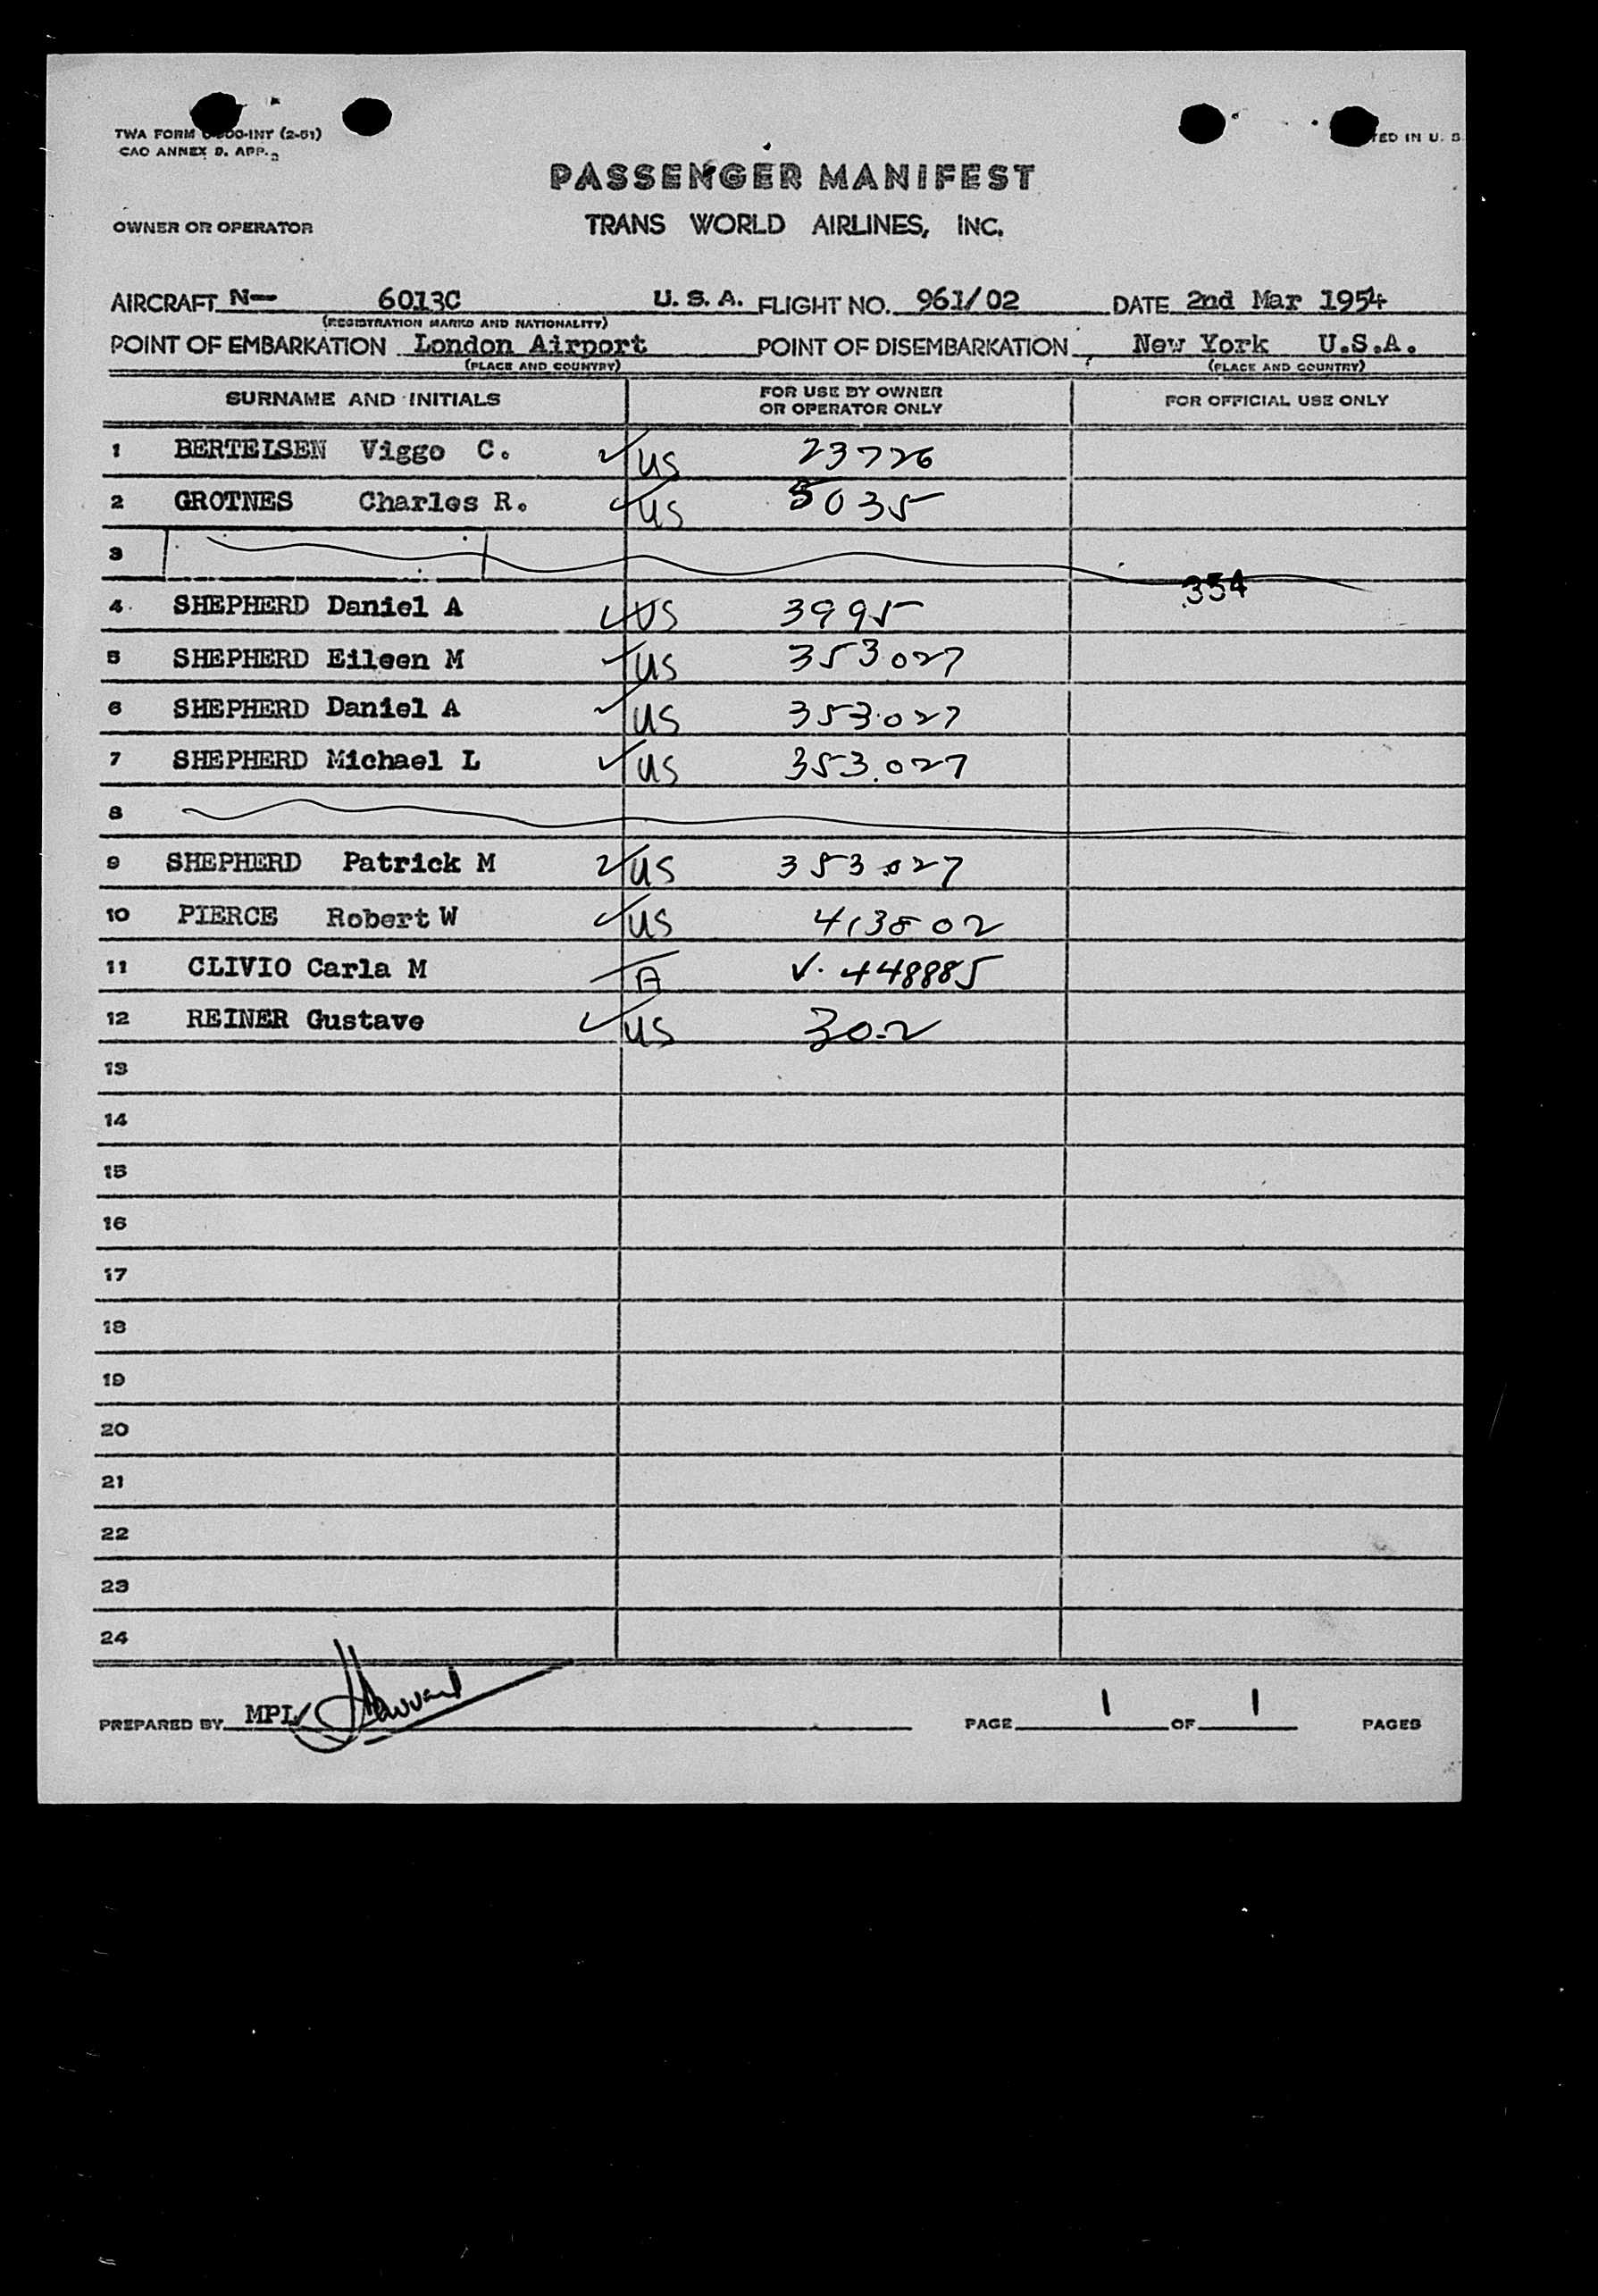 TWA FORM (2-51)
CAO ANNEX 9. APP. 2
TED IN U. S.
PASSENGER MANIFEST
OWNER OR OPERATOR TRANS WORLD AIRLINES, INC.
AIRCRAFT N— 6013C U. S. A. FLIGHT NO. 961/02 DATE 2nd Mar 1954
(REGISTRATION MARKS AND NATIONALITY)
POINT OF EMBARKATION London Airport POINT OF DISEMBARKATION New York U.S.A.
(PLACE AND COUNTRY) (PLACE AND COUNTRY)
SURNAME AND INITIALS FOR USE BY OWNER OR OPERATOR ONLY FOR OFFICIAL USE ONLY
1 BERTELSEN Viggo C. US 23726
2 GROTNES Charles R. US 5035
3
354
4 SHEPHERD Daniel A US 3995
5 SHEPHERD Eileen M US 353027
6 SHEPHERD Daniel A US 353027
7 SHEPHERD Michael L US 353027
8
9 SHEPHERD Patrick M US 353027
10 PIERCE Robert W US 413802
11 CLIVIO Carla M A V. 448885
12 REINER Gustave US 302
13
14
15
16
17
18
19
20
21
22
23
24
PREPARED BY MPL/ PAGE 1 OF 1 PAGES